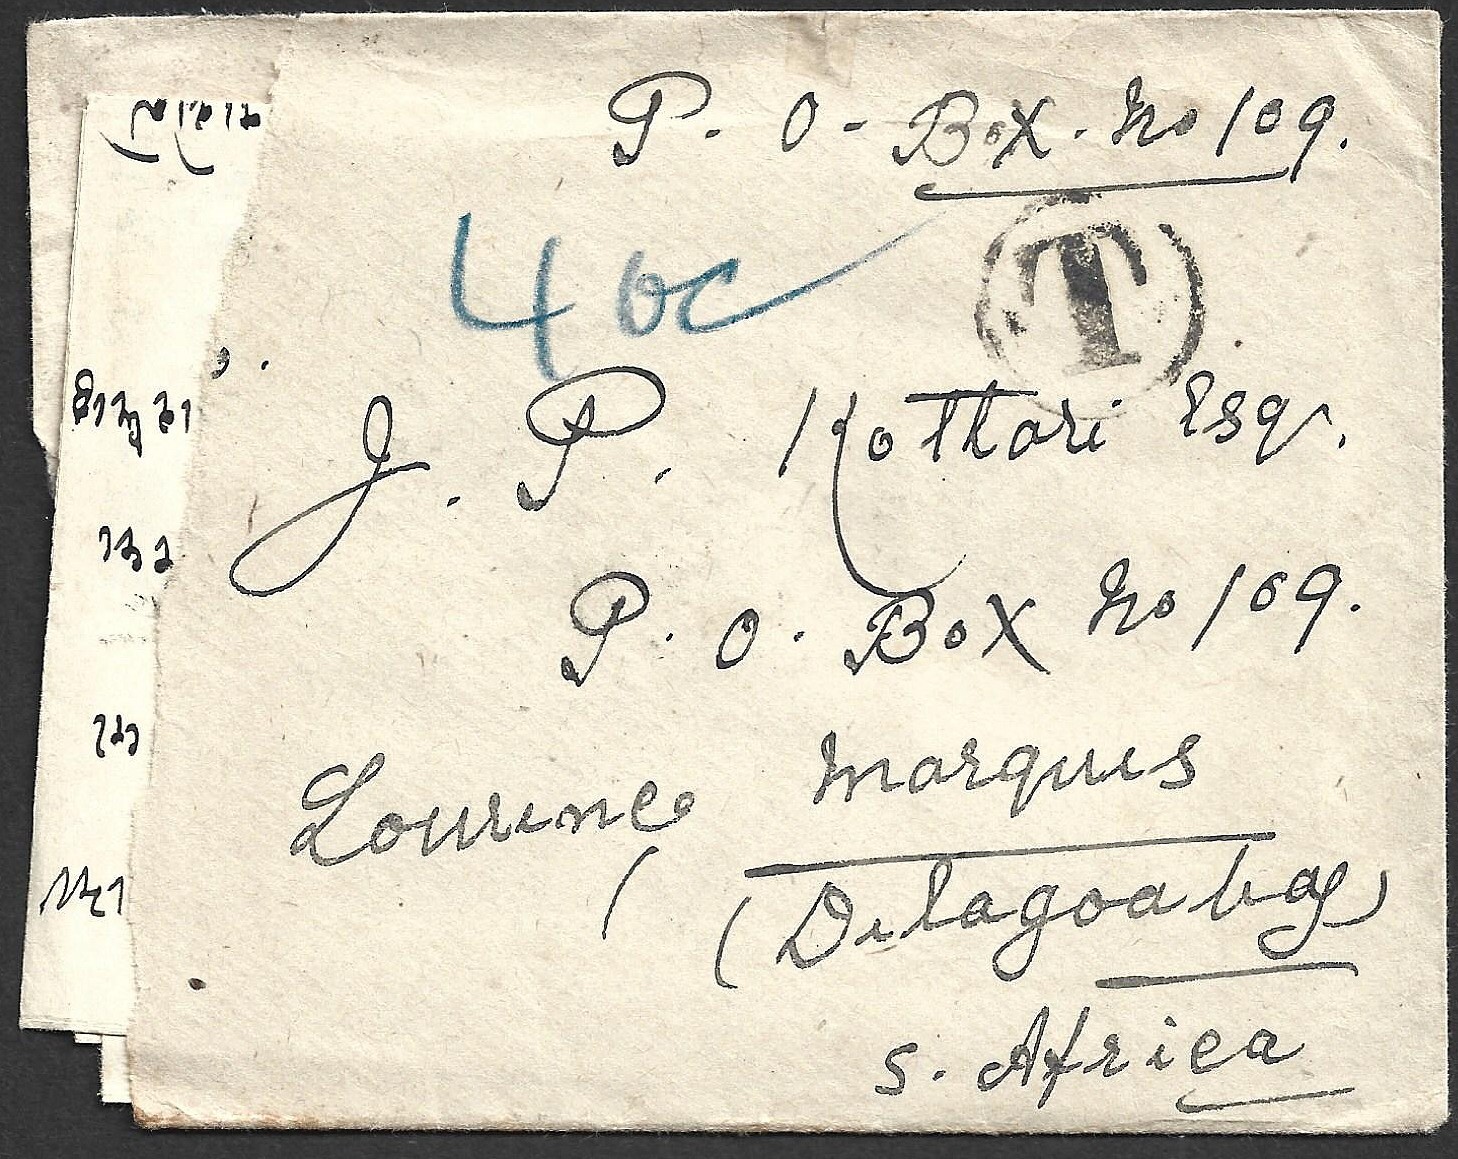 P. O. Box. No 109.
40c
T
J. P. Kothari Esq.
P. O. Box No 109.
Lourenco Marques
(Delagoa bay)
S. Africa